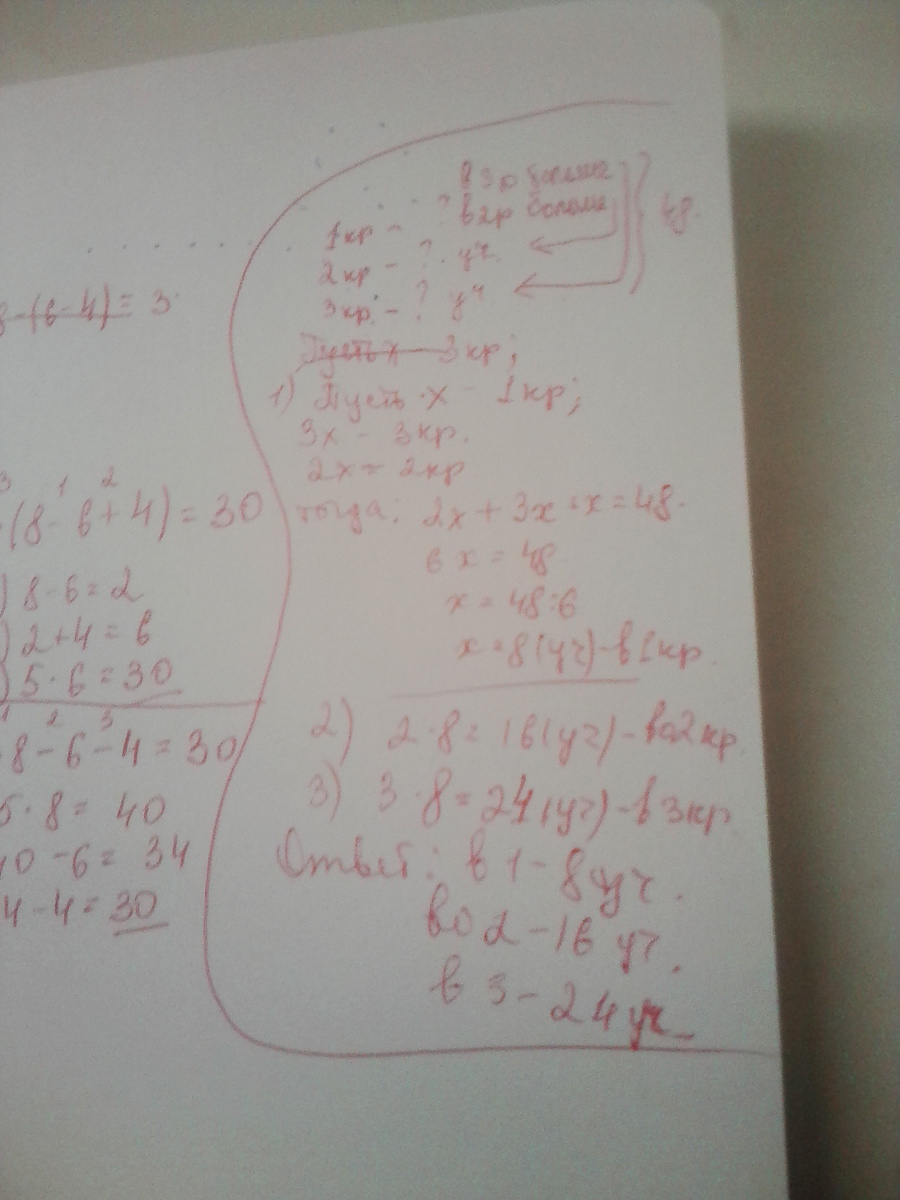 8-(6-4)= 3
3 1 2
(8-6+4)=30
) 8-6=2
) 2+4=6
) 5·6=30
1 2 3
·8-6-4=30
5·8=40
40-6=34
4-4=30
в 3р больше
1кр - ? в 2р больше
2кр - ? уч.
3кр. - ? уч
48.
Пусть х - 3кр;
1) Пусть х - 1кр;
3х - 3кр.
2х = 2кр
тогда: 2х+3х+х=48.
6х=48
х=48:6
х=8(уч)-в 1кр.
2) 2·8=16(уч)-во 2кр.
3) 3·8=24(уч)-в 3кр
Ответ: в 1-8уч.
во 2-16 уч.
в 3-24уч